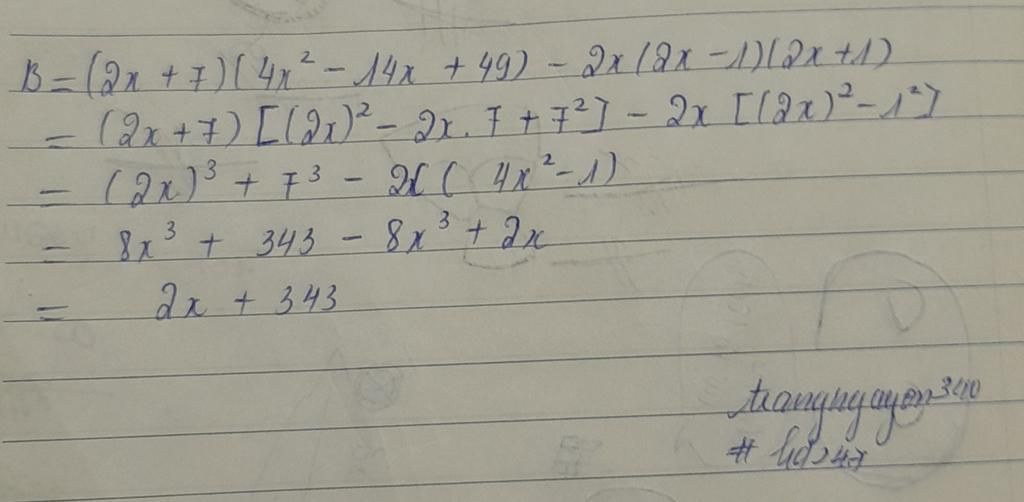 B = (2x + 7)(4x² - 14x + 49) - 2x(2x - 1)(2x + 1)
= (2x + 7) [(2x)² - 2x. 7 + 7²] - 2x [(2x)² - 1²]
= (2x)³ + 7³ - 2x( 4x² - 1)
= 8x³ + 343 - 8x³ + 2x
= 2x + 343
#